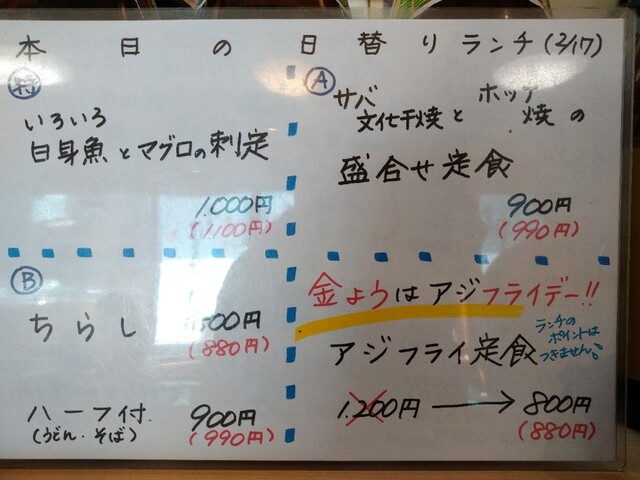 本日の日替りランチ(2/17)
特
いろいろ
白身魚とマグロの刺定
1.000円
(1100円)
A
サバ文化干焼とホッケ焼の
盛合せ定食
900円
(990円)
B
ちらし
800円
(880円)
ハーフ付
(うどん・そば)
900円
(990円)
金ようはアジフライデー!!
アジフライ定食
ランチの
ポイントは
つきません
1.200円→800円
(880円)